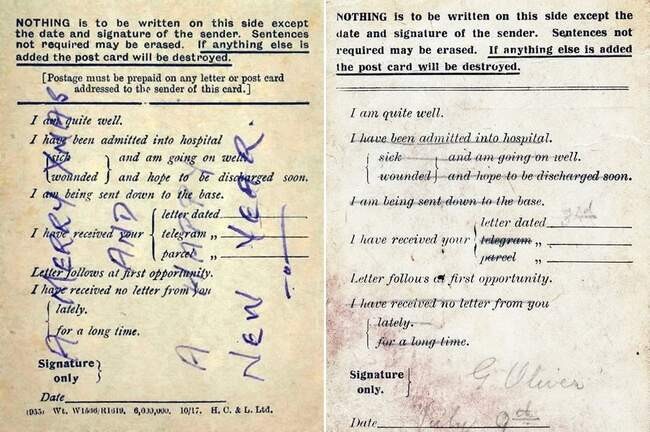 NOTHING is to be written on this side except
the date and signature of the sender. Sentences
not required may be erased. If anything else is
added the post card will be destroyed.
[Postage must be prepaid on any letter or post card
addressed to the sender of this card.]
I am quite well.
I have been admitted into hospital
sick
and am going on well.
wounded
and hope to be discharged soon.
I am being sent down to the base.
letter dated
I have received your
telegram „
parcel „
Letter follows at first opportunity.
I have received no letter from you
lately.
for a long time.
Signature
only
Date
(935) Wt. W1566/R1619. 6,000,000. 10/17. H. C. & L. Ltd.
A MERRY XMAS
AND
A HAPPY
NEW YEAR
NOTHING is to be written on this side except the
date and signature of the sender. Sentences not
required may be erased. If anything else is added
the post card will be destroyed.
I am quite well.
I have been admitted into hospital.
sick
and am going on well.
wounded
and hope to be discharged soon.
I am being sent down to the base.
letter dated 3rd
I have received your
telegram „
parcel „
Letter follows at first opportunity.
I have received no letter from you
lately.
for a long time.
Signature
only.
G Oliver
Date July 9th